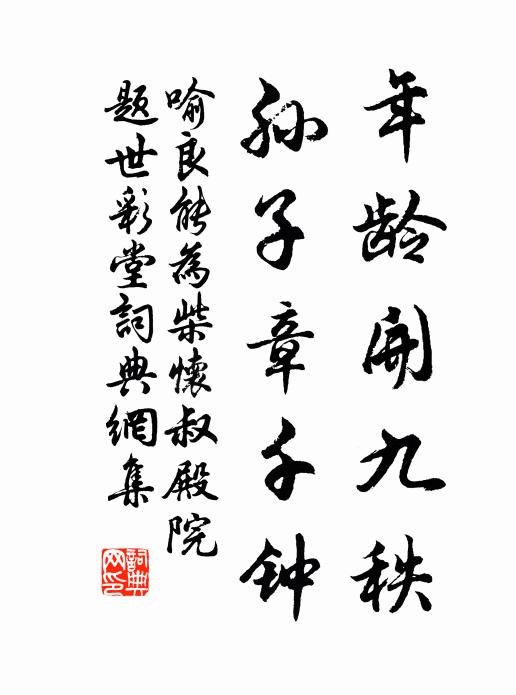 年龄開九秩
孙子章千钟
喻良能為柴懷叔殿院
题世彩堂詞典網集
詞典网印